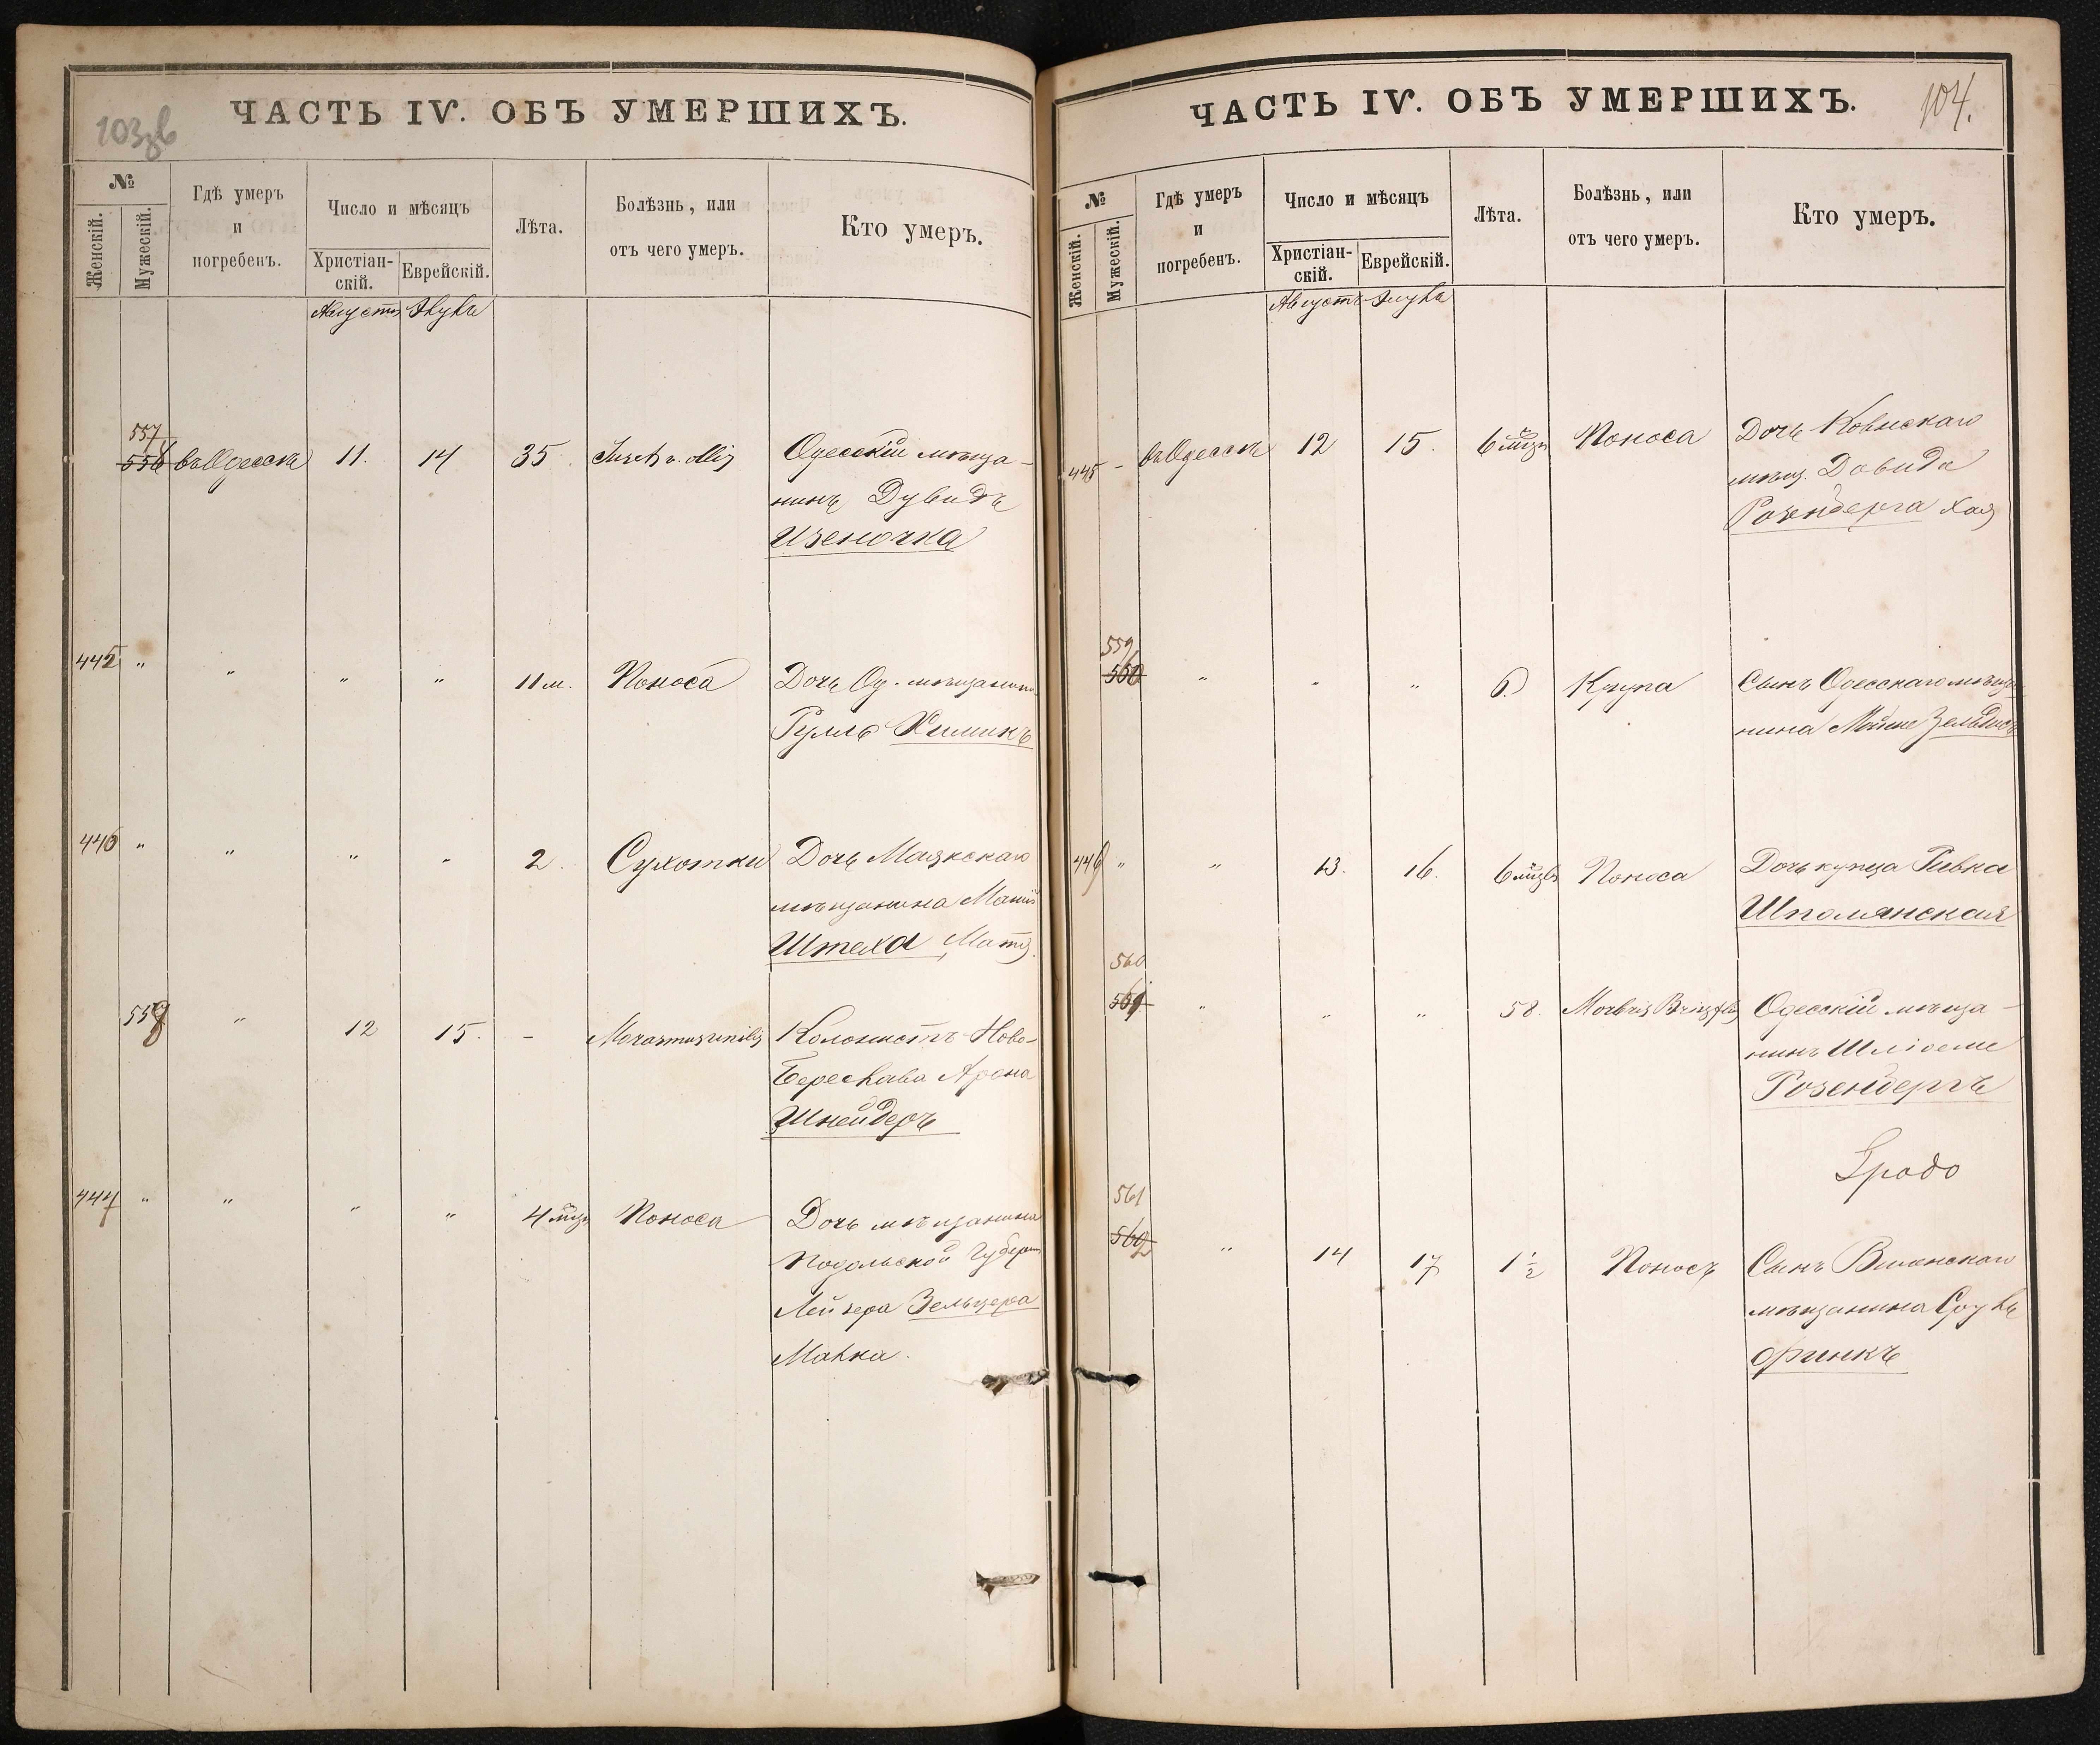 103зв
ЧАСТЬ IV. ОБЪ УМЕРШИХЪ.
№
Женскій.
Мужескій.
Гдѣ умеръ
и
погребенъ.
Число и мѣсяцъ
Христіан-
скій.
Еврейскій.
Лѣта.
Болѣзнь, или
отъ чего умеръ.
Кто умеръ.
Августъ
557
556 въ Одессѣ 11. 14 35. Одесскій мѣща-
нинъ Дувидъ
Изеночка
442 " " " " 11 м. Поноса Дочь Од. мѣщанина
Рулля Химикъ
" " " " 2. Сухотки Дочь Маякскаго
мѣщанина
Штеха
558 " 12 15. - Колонистъ Ново-
Береслава Арона
Шнейдеръ
444 " " " " 4 мѣц Поноса Дочь мѣщанина
Подольской Губерн
Лейзера Зельцера
Малка.
104.
ЧАСТЬ IV. ОБЪ УМЕРШИХЪ.
№
Женскій.
Мужескій.
Гдѣ умеръ
и
погребенъ.
Число и мѣсяцъ
Христіан-
скій.
Еврейскій.
Лѣта.
Болѣзнь, или
отъ чего умеръ.
Кто умеръ.
Августъ Элула
445 - въ Одессѣ 12 15. 6 мѣц Поноса Дочь Ковнскаго
мѣщ. Давида
Розенберга Хая
559
558 " " " 6. Крупа Сынъ Одесскаго мѣща
нина
446 " " 13. 16. 6 мѣц Поноса Дочь купца Ривка
Шполянская
560
559 " " " 58. Одесскій мѣща-
нинъ Шліоеме
Розенбергъ
561
560 " 14 17 1½ Поносъ Сынъ
мѣщанина Сруль
Финкъ